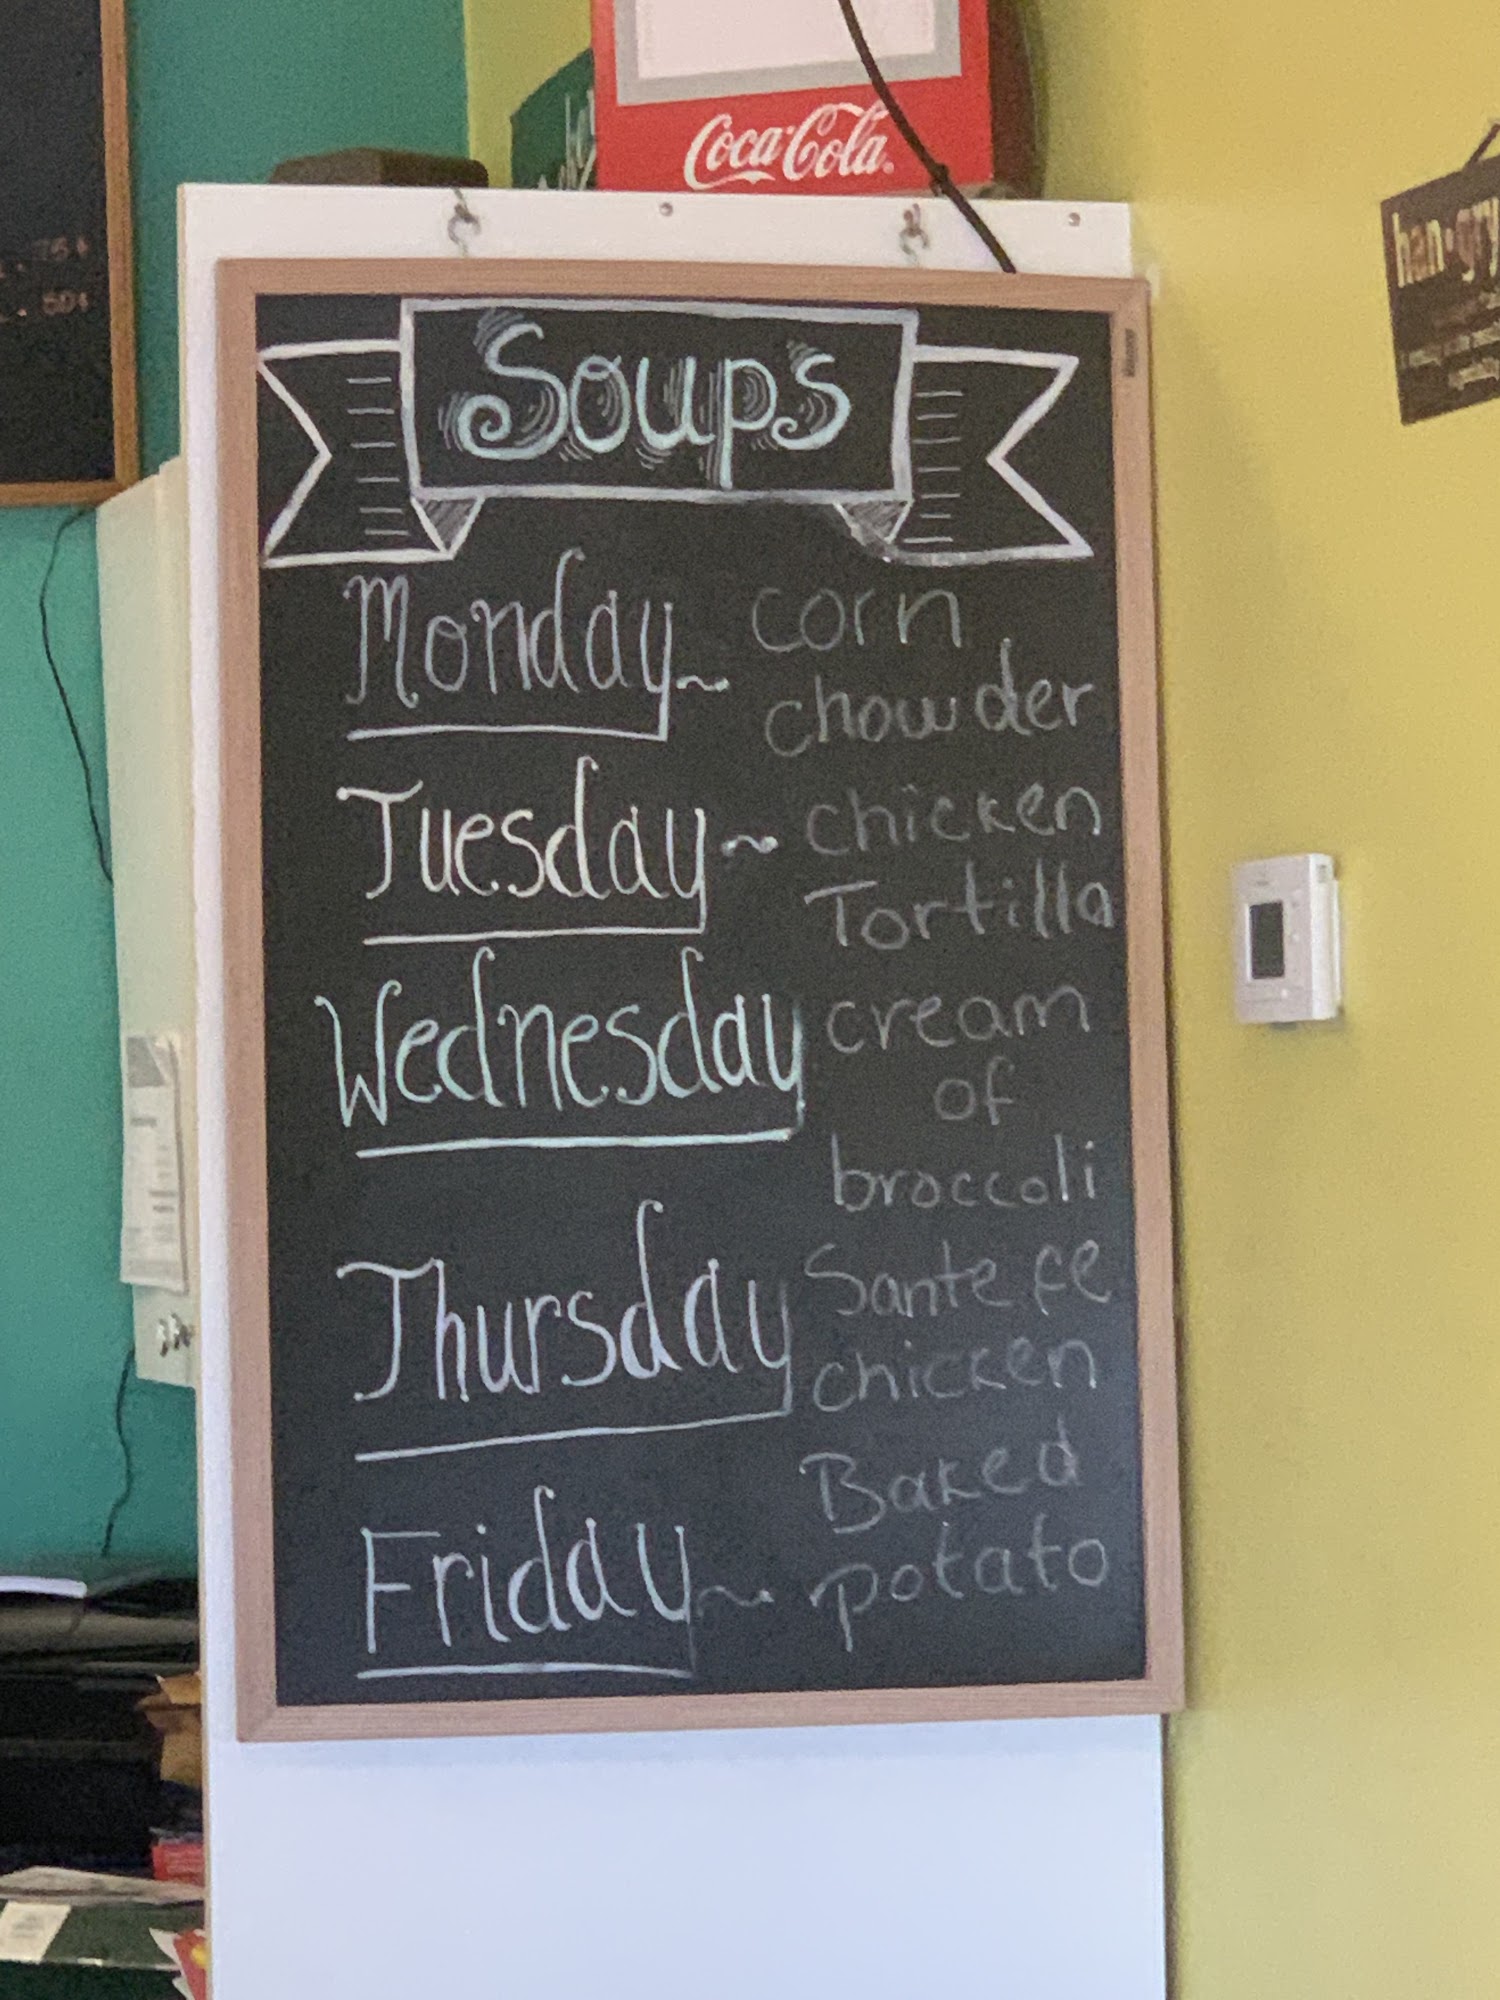 Coca-Cola
.75¢
.50¢
han•gry
Soups
Monday~ corn
chowder
Tuesday~ chicken
Tortilla
Wednesday cream
of
broccoli
Thursday Sante fe
chicken
Baked
Friday~ potato